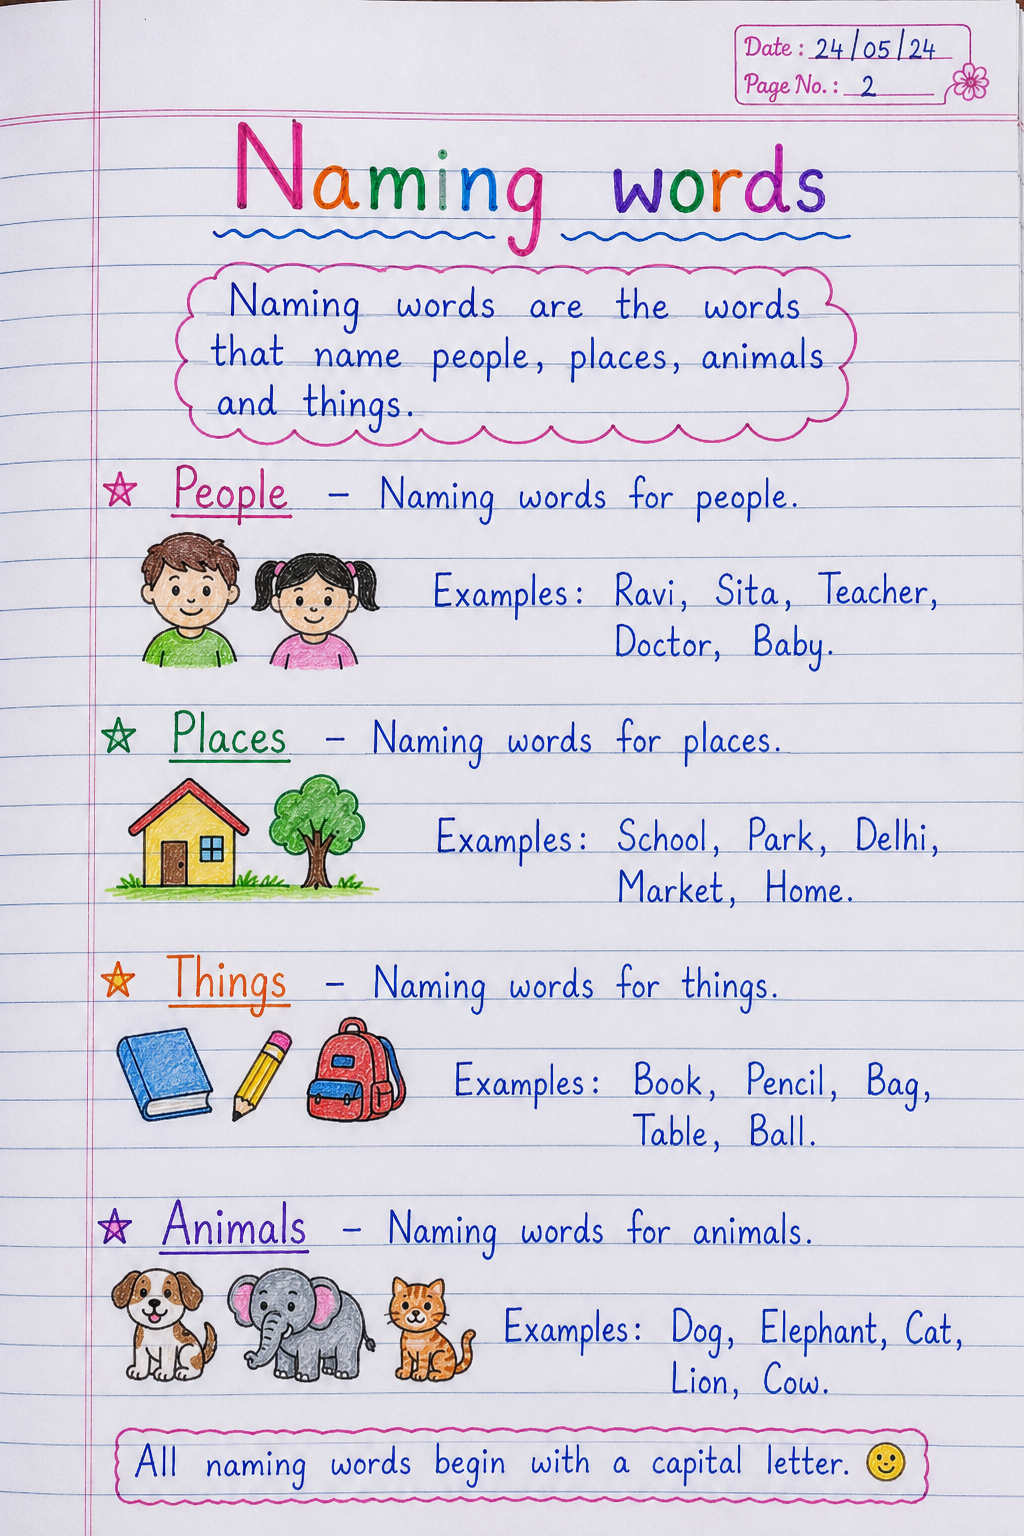 Date : 24/05/24
Page No. : 2
Naming words
Naming words are the words
that name people, places, animals
and things.
People - Naming words for people.
Examples: Ravi, Sita, Teacher,
Doctor, Baby.
Places - Naming words for places.
Examples: School, Park, Delhi,
Market, Home.
Things - Naming words for things.
Examples: Book, Pencil, Bag,
Table, Ball.
Animals - Naming words for animals.
Examples: Dog, Elephant, Cat,
Lion, Cow.
All naming words begin with a capital letter.